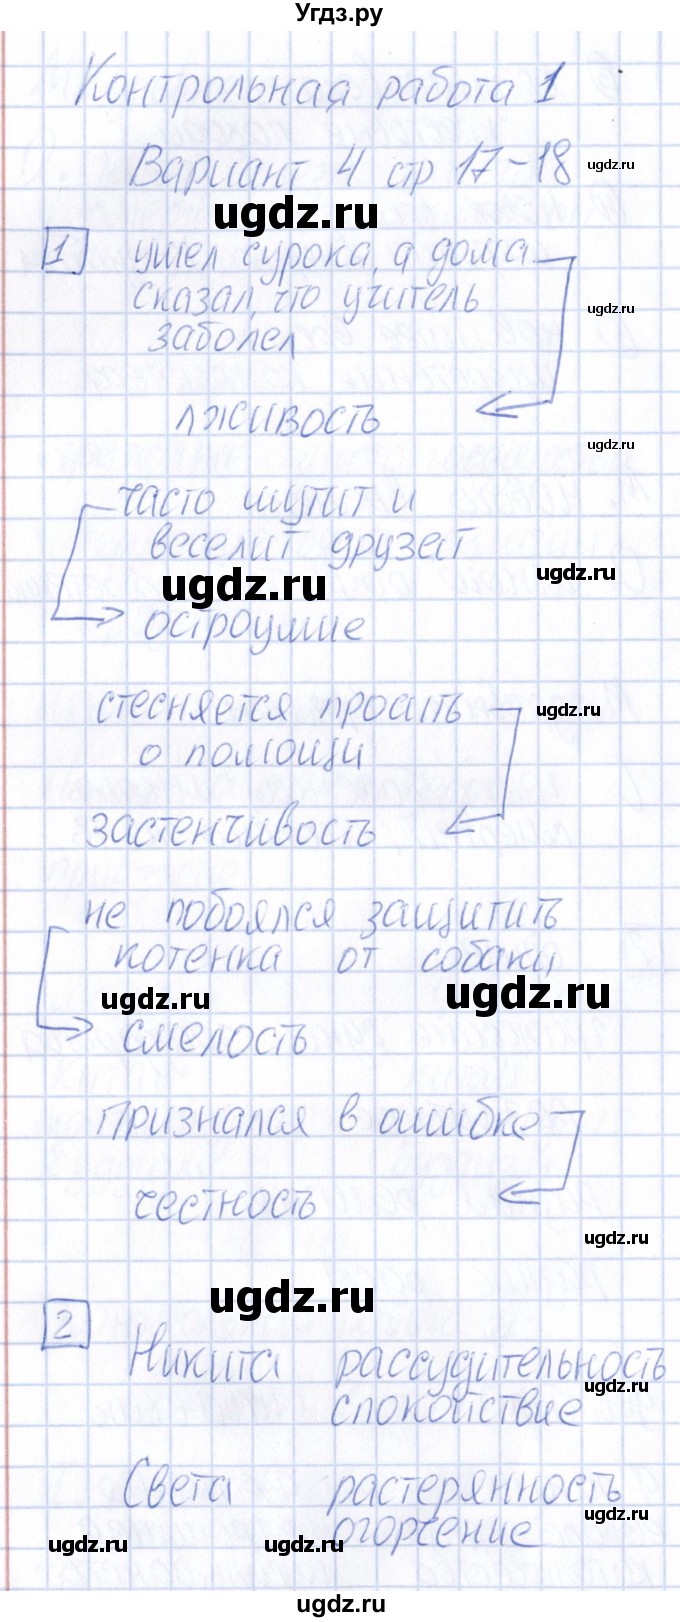 Угдз.ру
Контрольная работа 1
Вариант 4 стр 17-18
ugdz.ru
ugdz.ru
1 ушел с урока, а дома
сказал, что учитель
ugdz.ru
заболел
лживость
ugdz.ru
часто шутит и
веселит друзей
ugdz.ru
ugdz.ru
остроумие
стесняется просить
ugdz.ru
о помощи
застенчивость
не побоялся защитить
котенка от собаки
ugdz.ru
ugdz.ru
смелость
признался в ошибке
честность
ugdz.ru
ugdz.ru
2
Никита рассудительность
ugdz.ru
спокойствие
Света растерянность
ugdz.ru
огорчение
ugdz.ru
ugdz.ru
ugdz.ru